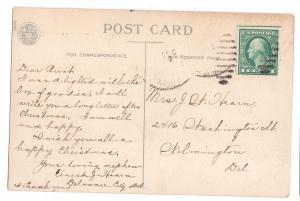 POST CARD
FOR CORRESPONDENCE
FOR ADDRESS ONLY
1
Dear Aunt
I was delighted with the
box of goodies. I will
write you a long letter after
Christmas, I am well
and happy.
I wish you all a
happy Christmas.
Your loving nephew
Ernest J. Hearn
I thank you Delaware City Del.
Mrs J. W. Hearn
2416 Washington St
Wilmington
Del